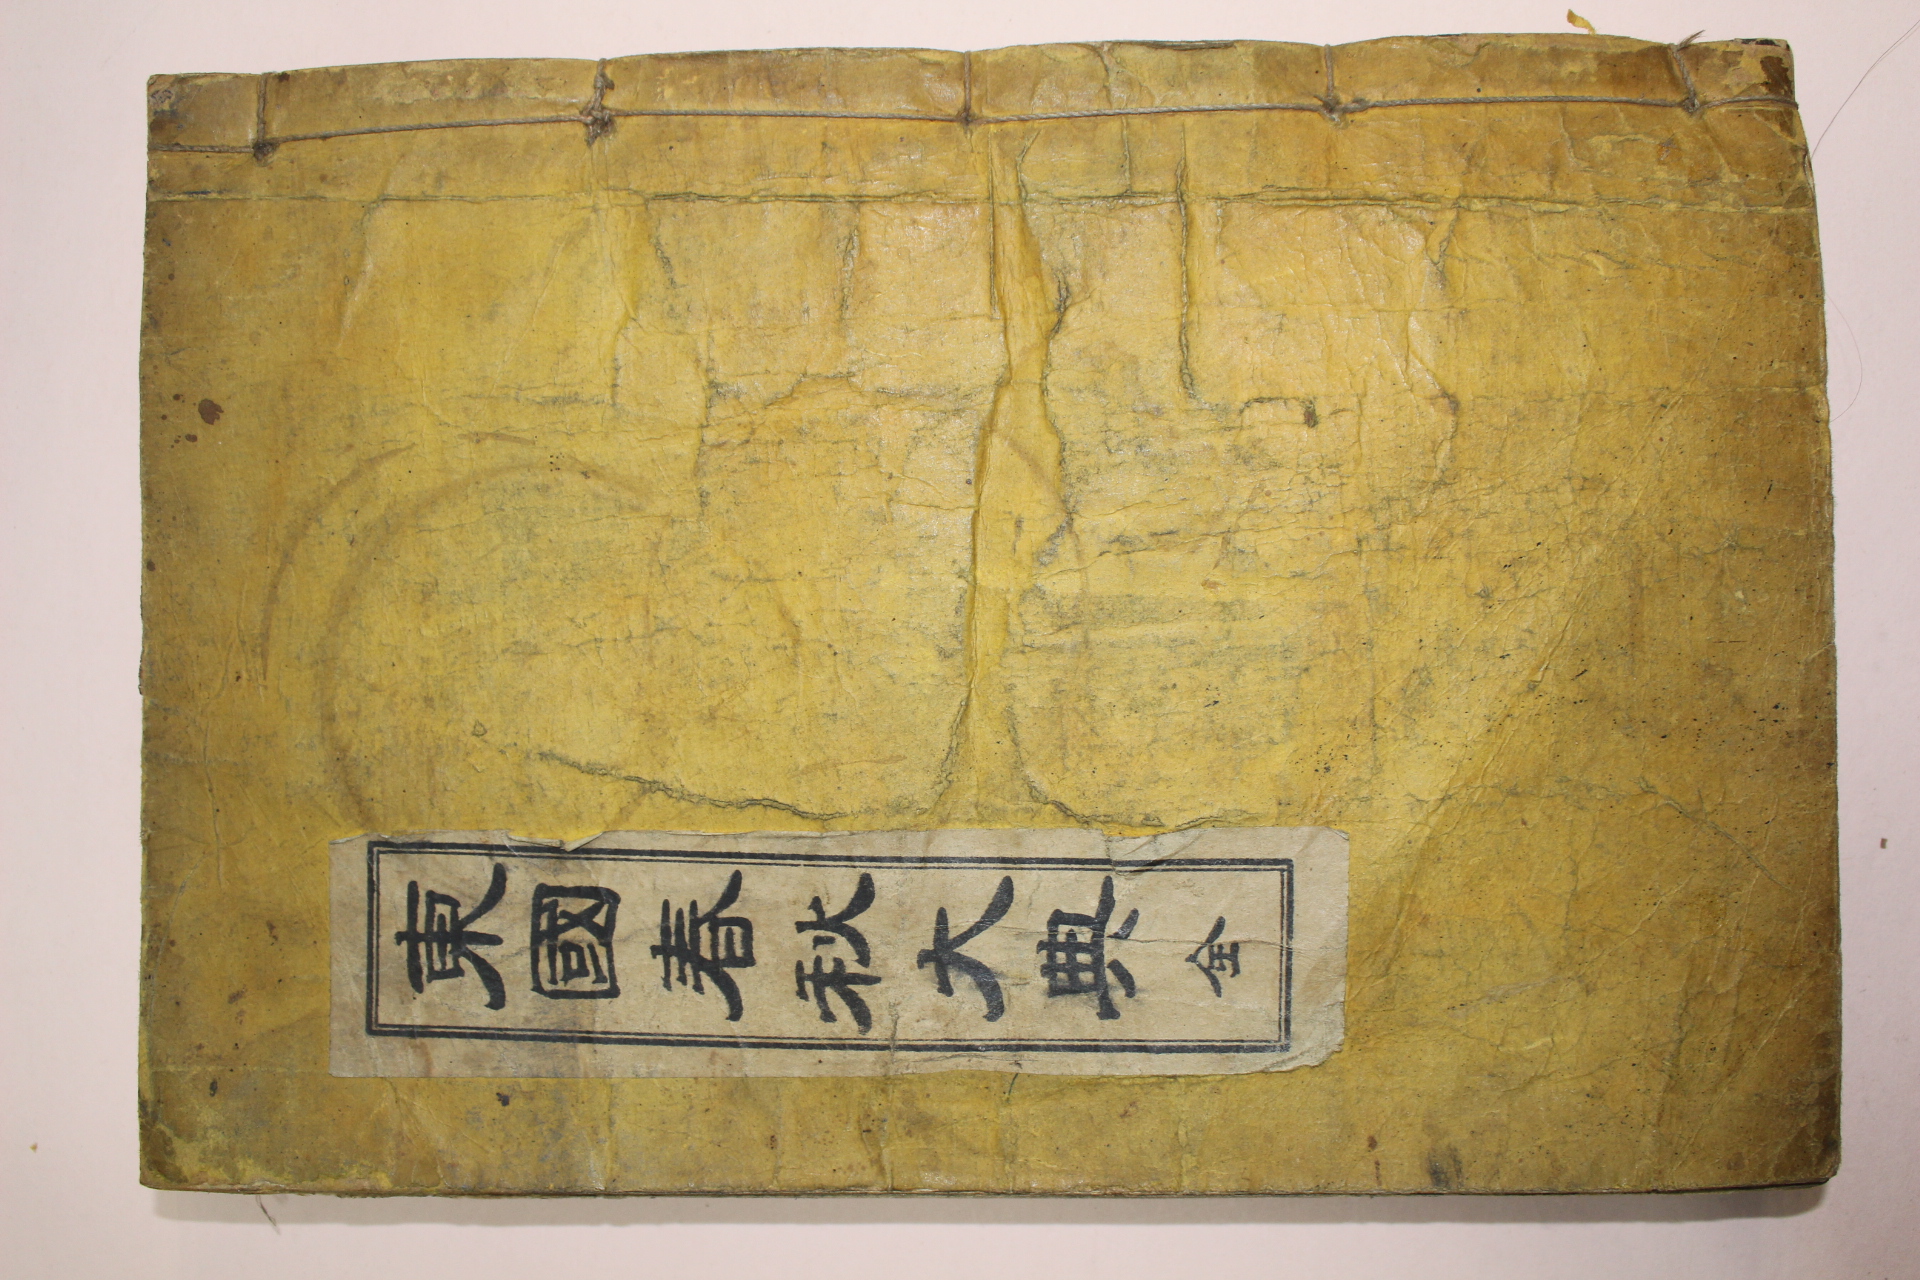 東國春秋大典 全